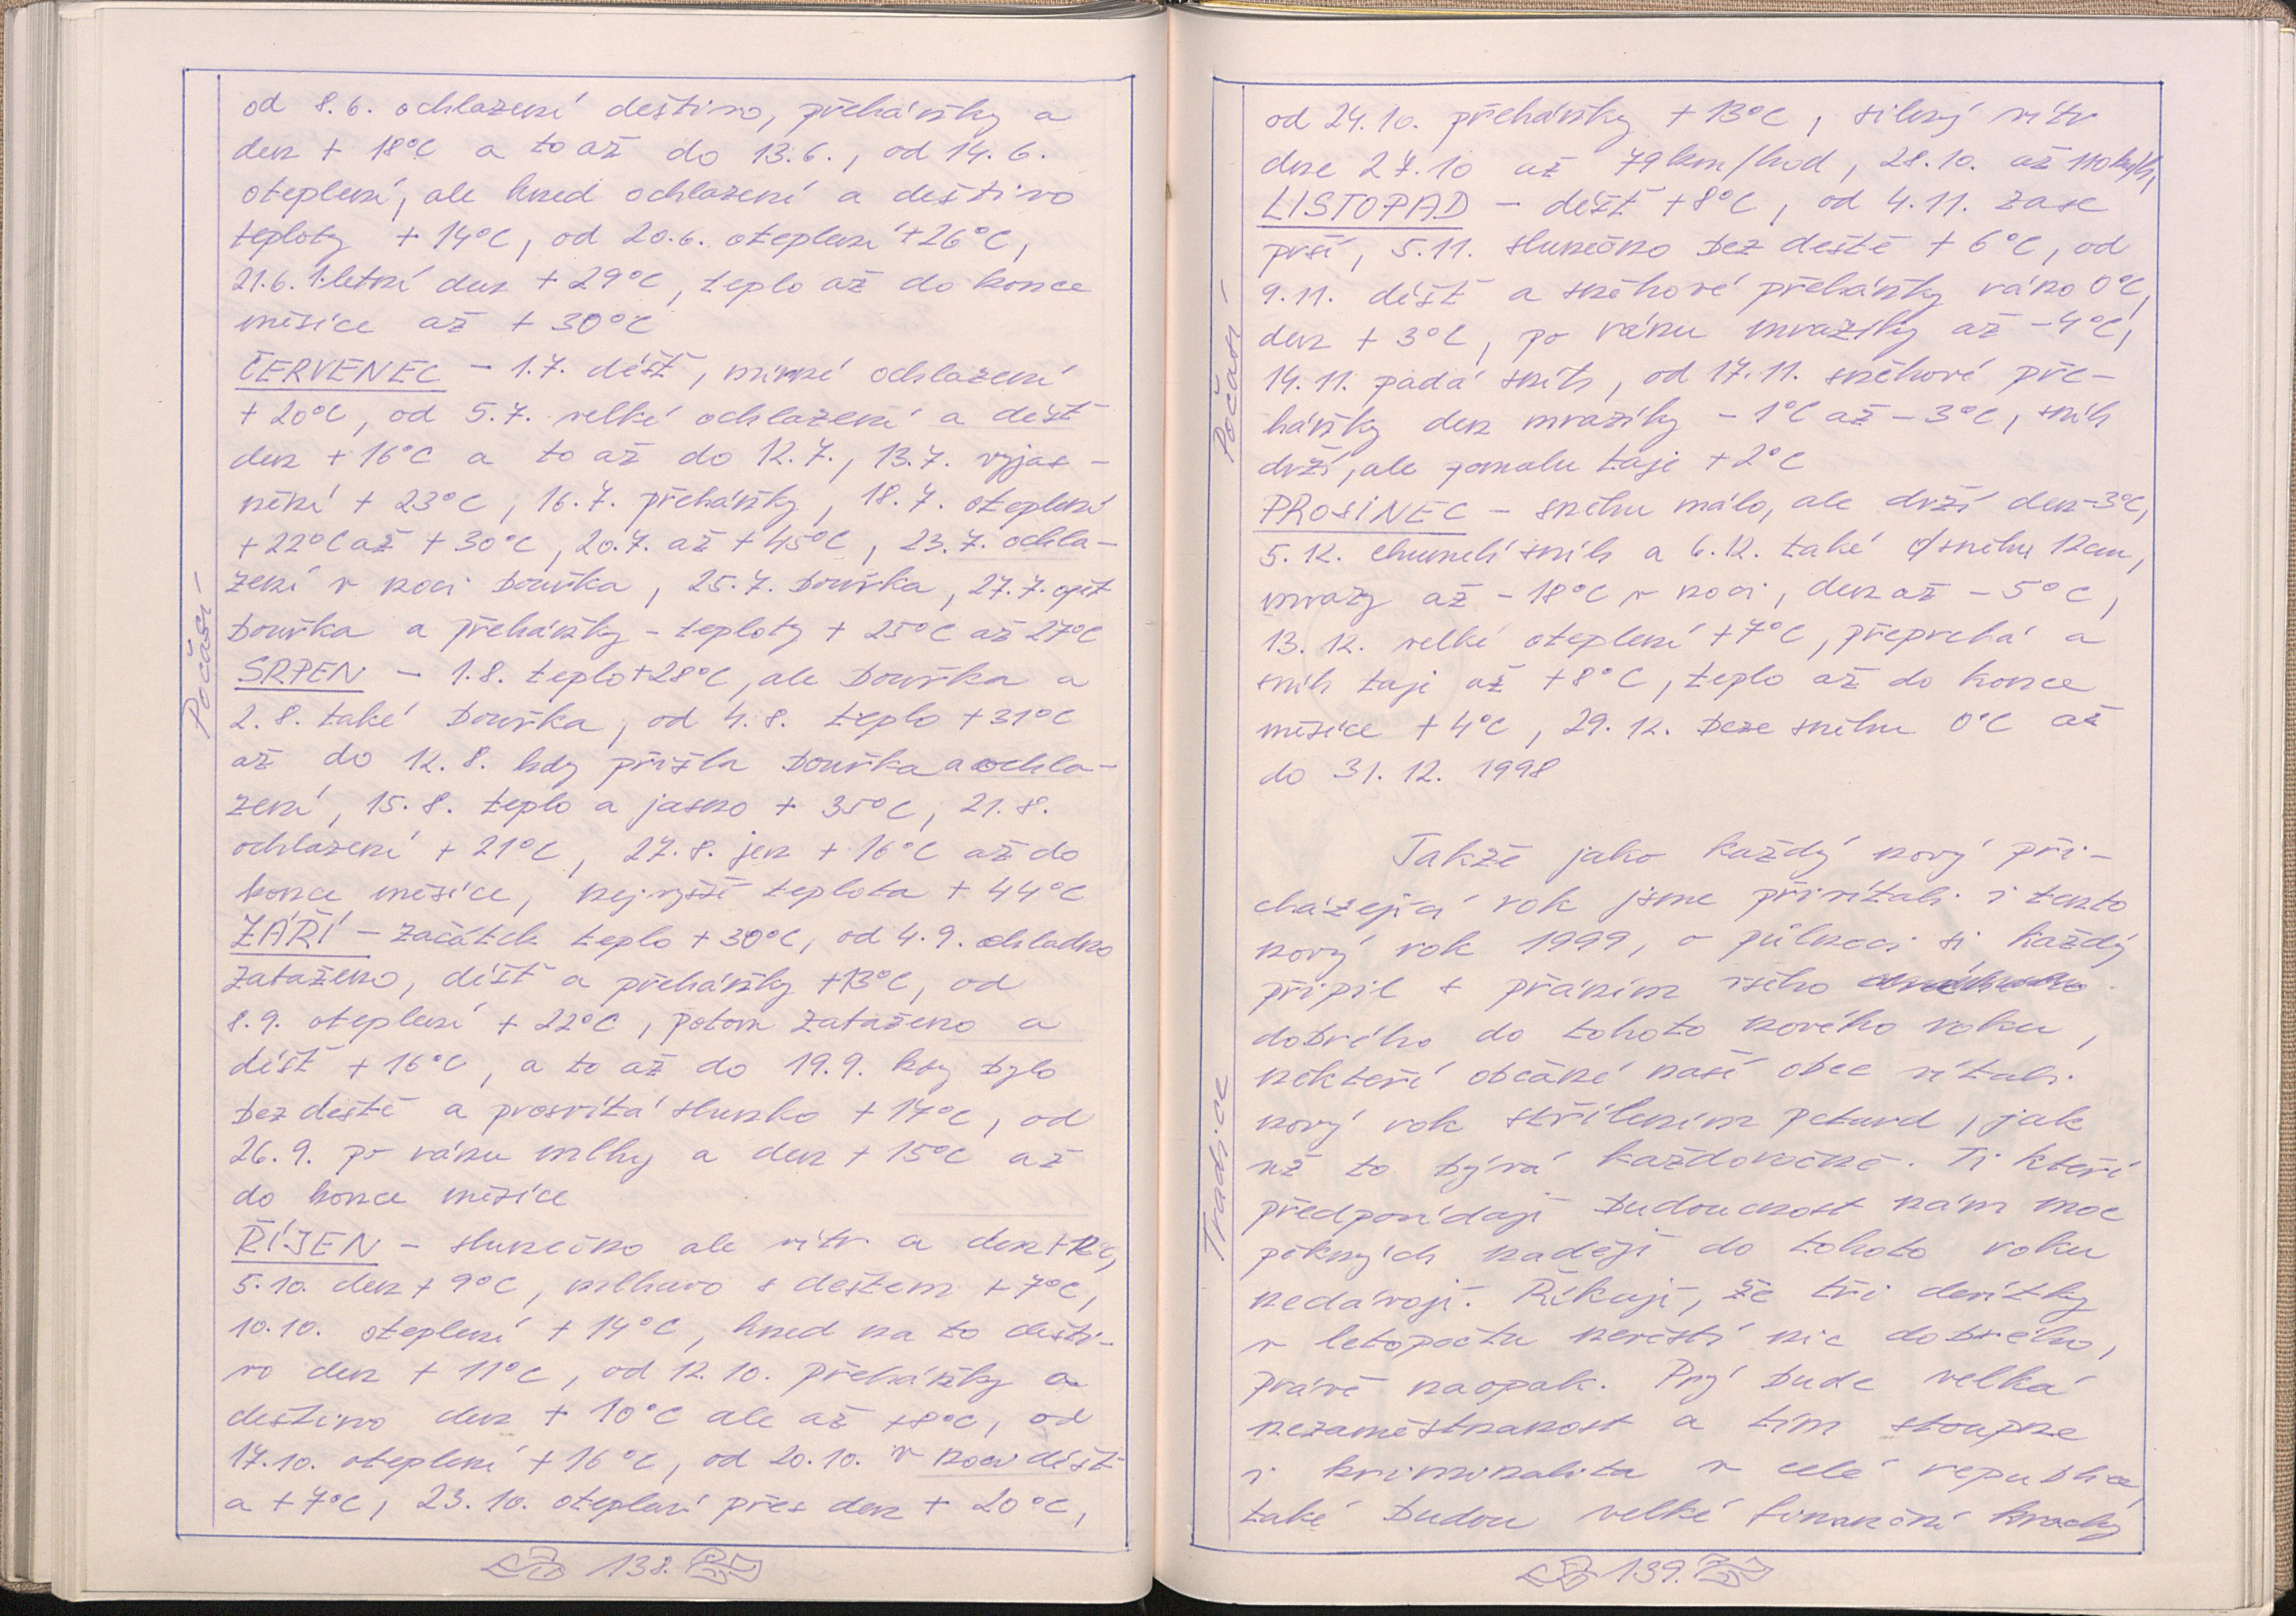 Počasí
od 8.6. ochlazení deštivo, přeháňky a
den + 18°C a to až do 13.6., od 14.6.
oteplení, ale hned ochlazení a deštivo
teploty + 14°C, od 20.6. oteplení +26°C,
21.6. 1.letní den + 29°C, teplo až do konce
měsíce až + 30°C
ČERVENEC - 1.7. déšť, mírné ochlazení
+ 20°C, od 5.7. velké ochlazení a déšť
den + 16°C a to až do 12.7., 13.7. vyjas-
nění + 23°C, 16.7. přeháňky, 18.7. oteplení
+22°C až + 30°C, 20.7. až + 45°C, 23.7. ochla-
zení v noci bouřka, 25.7. bouřka, 27.7. opět
bouřka a přeháňky - teploty + 25°C až 27°C
SRPEN - 1.8. teplo +28°C, ale bouřka a
2.8. také bouřka, od 4.8. teplo + 31°C
až do 12.8. kdy přišla bouřka a ochla-
zení, 15.8. teplo a jasno + 35°C, 21.8.
ochlazení + 21°C, 27.8. jen + 16°C až do
konce měsíce, nejvyšší teplota + 44°C
ZÁŘÍ - začátek teplo + 30°C, od 4.9. chladno
zataženo, déšť a přeháňky +13°C, od
8.9. oteplení + 22°C, potom zataženo a
déšť + 16°C, a to až do 19.9. kdy bylo
bez deště a prosvítá slunko + 17°C, od
26.9. po ránu mlhy a den + 15°C až
do konce měsíce
ŘÍJEN - slunečno ale vítr a den +12°C,
5.10. den + 9°C, mlhavo s deštěm + 7°C,
10.10. oteplení + 14°C, hned na to dešti-
vo den + 11°C, od 12.10. přeháňky a
deštivo den + 10°C ale až +8°C, od
17.10. oteplení + 16°C, od 20.10. v noci déšť
a + 7°C, 23.10. oteplení přes den + 20°C,
138.
Počasí
od 24.10. přeháňky + 13°C, silný vítr
dne 27.10 až 79 km/hod, 28.10. až 110 km/h,
LISTOPAD - déšť +8°C, od 4.11. zase
prší, 5.11. slunečno bez deště + 6°C, od
9.11. déšť a sněhové přeháňky ráno 0°C,
den + 3°C, po ránu mrazíky až -4°C,
14.11. padá sníh, od 17.11. sněhové pře-
háňky den mrazíky - 1°C až - 3°C, sníh
drží, ale pomalu taje +2°C
PROSINEC - sněhu málo, ale drží den -3°C,
5.12. chumelí sníh a 6.12. také sněhu 12cm,
mrazy až - 18°C v noci, den až - 5°C,
13.12. velké oteplení +7°C, přeprchá a
sníh taje až +8°C, teplo až do konce
měsíce + 4°C, 29.12. beze sněhu 0°C až
do 31.12. 1998
Takže jako každý nový při-
cházející rok jsme přivítali i tento
nový rok 1999, o půlnoci si každý
připil s přáním všeho
dobrého do tohoto nového roku,
někteří občané naší obce vítali
nový rok střílením petard, jak
už to bývá každoročně. Ti kteří
předpovídají budoucnost nám moc
pěkných nadějí do tohoto roku
nedávají. Říkají, že tři devítky
v letopočtu nevěstí nic dobrého,
právě naopak. Prý bude velká
nezaměstnanost a tím stoupne
i kriminalita v celé republice,
také budou velké finanční krachy
Tradice
139.